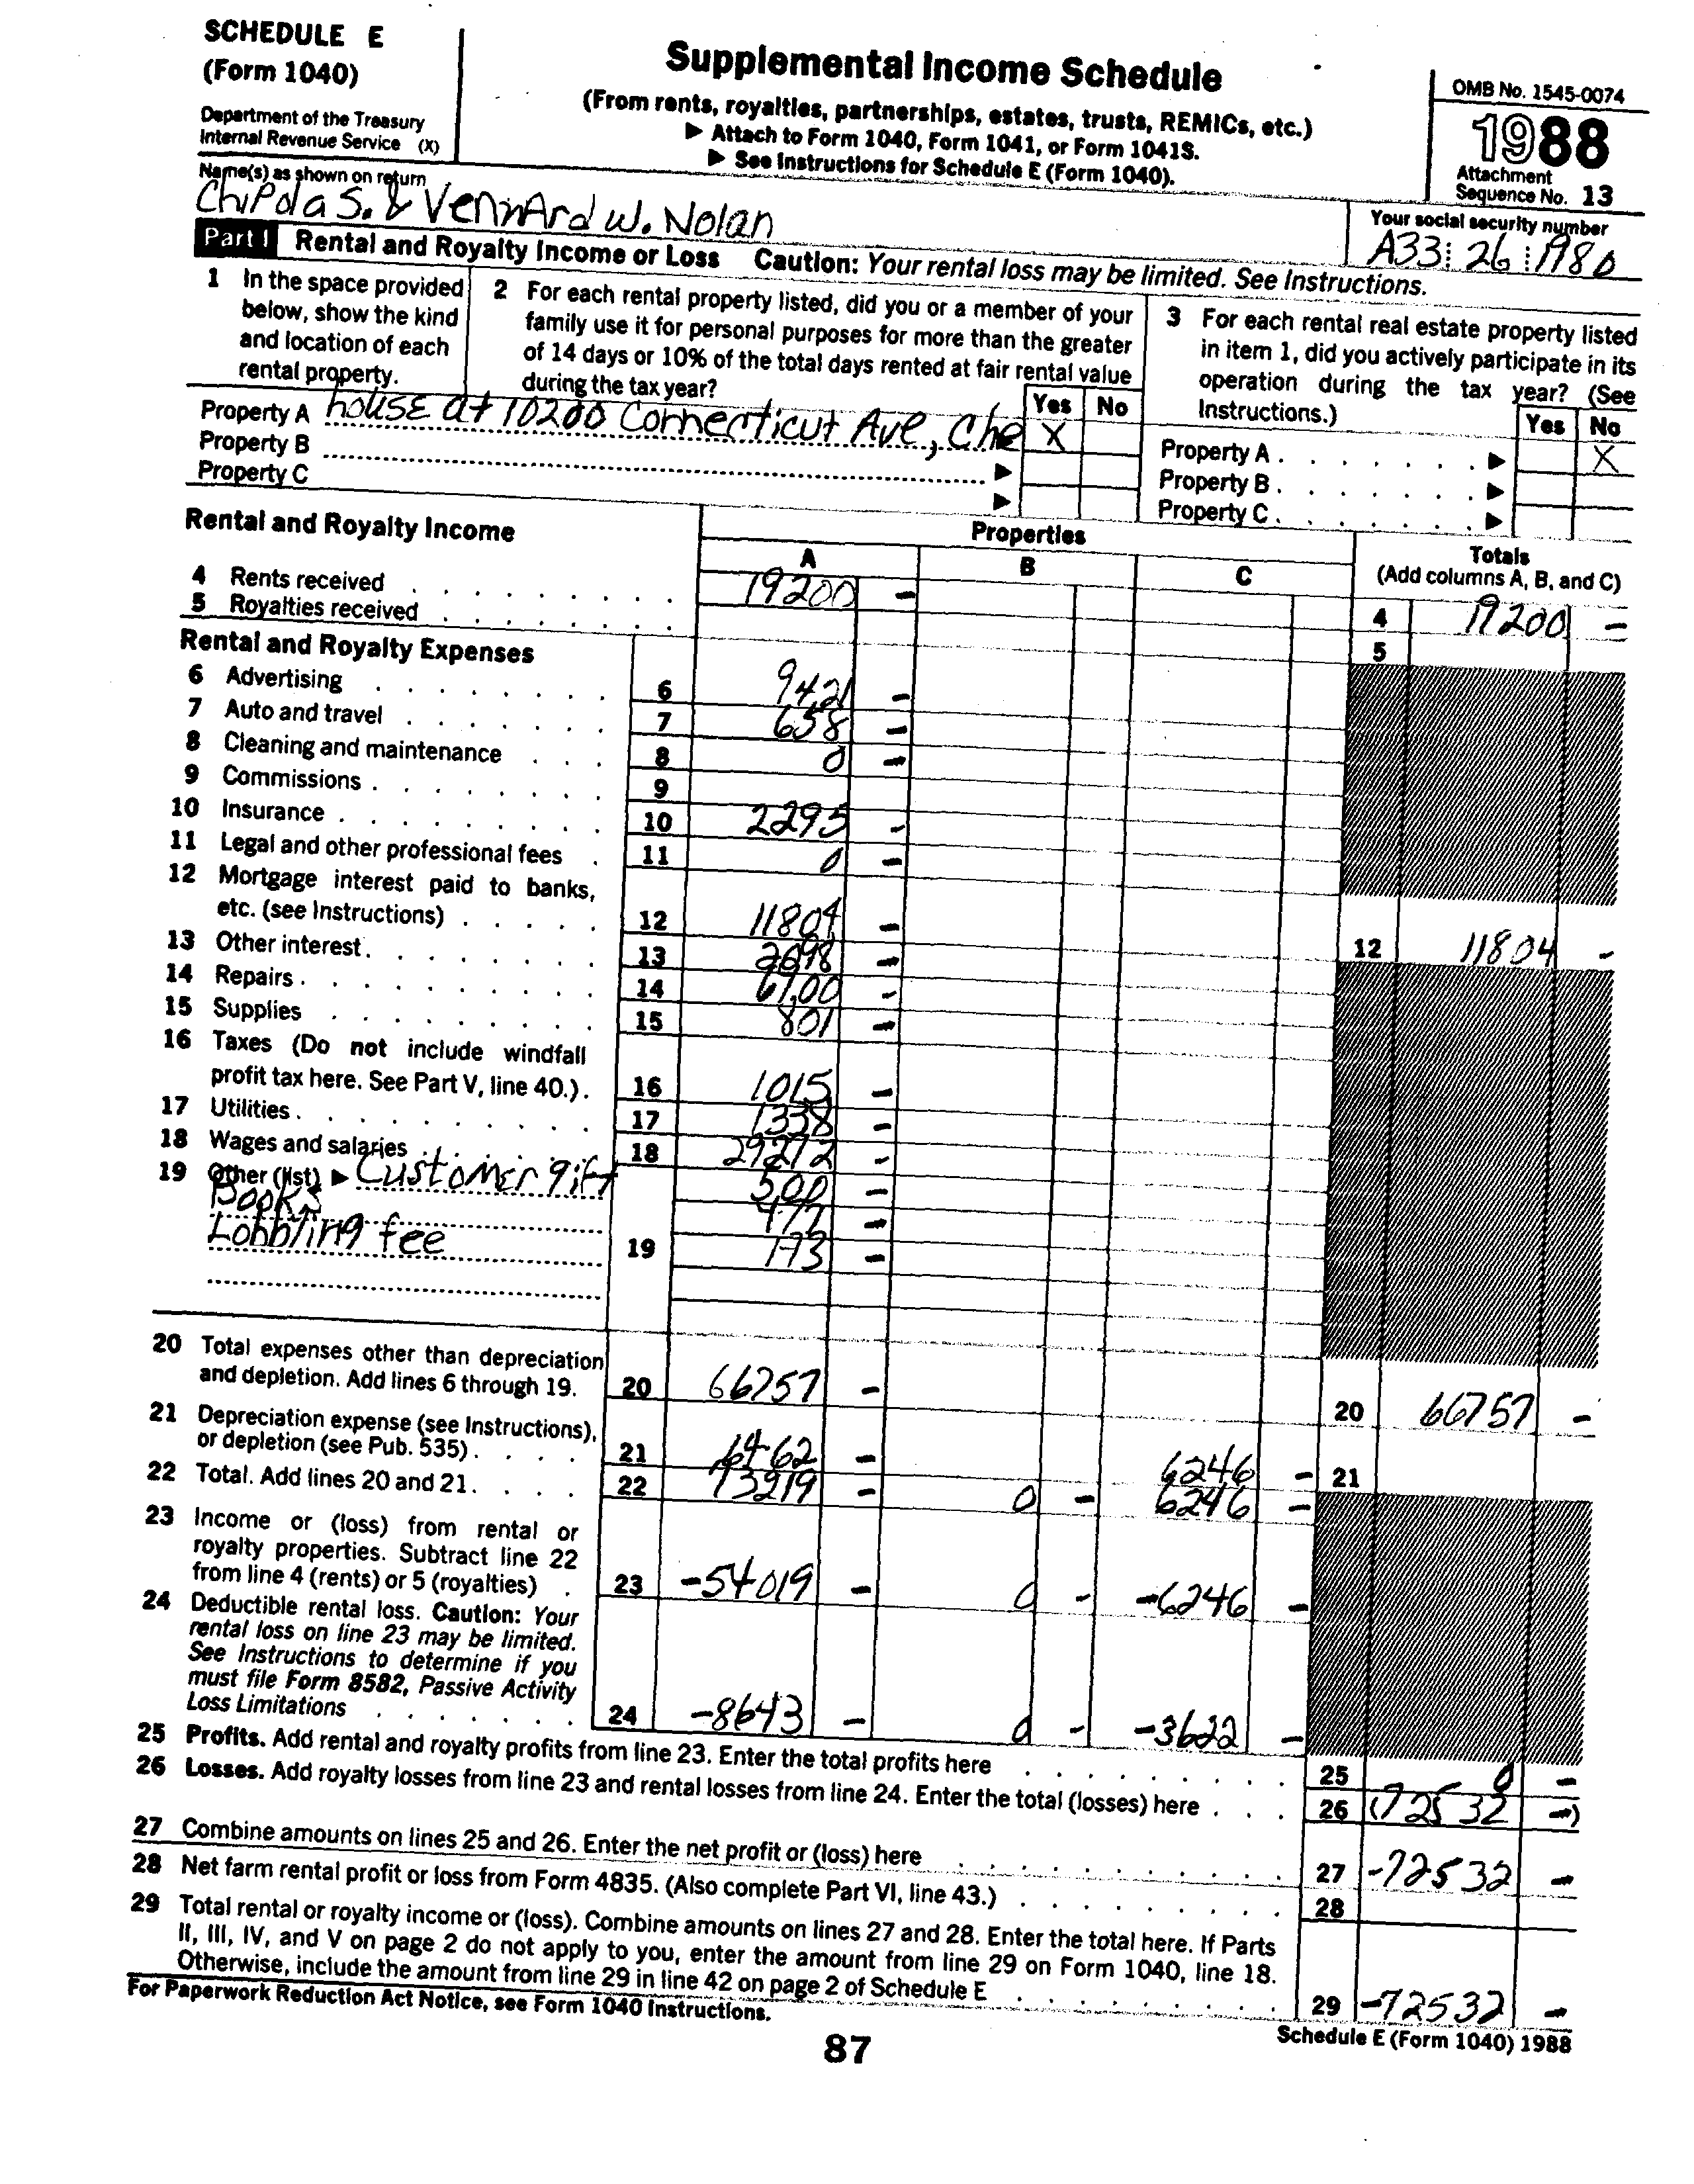 SCHEDULE E
(Form 1040)
Department of the Treasury
Internal Revenue Service (X)
Supplemental Income Schedule
(From rents, royalties, partnerships, estates, trusts, REMICs, etc.)
▶ Attach to Form 1040, Form 1041, or Form 1041S.
▶ See Instructions for Schedule E (Form 1040).
OMB No. 1545-0074
1988
Attachment
Sequence No. 13
Name(s) as shown on return
Chipola S. & Vennard W. Nolan
Your social security number
A33 26 1980
Part I Rental and Royalty Income or Loss Caution: Your rental loss may be limited. See Instructions.
1 In the space provided
below, show the kind
and location of each
rental property.
2 For each rental property listed, did you or a member of your
family use it for personal purposes for more than the greater
of 14 days or 10% of the total days rented at fair rental value
during the tax year?
Yes No
3 For each rental real estate property listed
in item 1, did you actively participate in its
operation during the tax year? (See
Instructions.)
Yes No
Property A house at 10200 Connecticut Ave, Che X
Property B ▶
Property C ▶
Property A . ▶ X
Property B . ▶
Property C . ▶
Rental and Royalty Income
Properties
A B C
Totals
(Add columns A, B, and C)
4 Rents received 19200 – 4 19200 –
5 Royalties received 5
Rental and Royalty Expenses
6 Advertising 6 9421 –
7 Auto and travel 7 658 –
8 Cleaning and maintenance 8 0 –
9 Commissions 9
10 Insurance 10 2295 –
11 Legal and other professional fees 11 0 –
12 Mortgage interest paid to banks,
etc. (see Instructions) 12 11804 – 12 11804 –
13 Other interest 13 2698 –
14 Repairs 14 6100 –
15 Supplies 15 801 –
16 Taxes (Do not include windfall
profit tax here. See Part V, line 40.) 16 1015 –
17 Utilities 17 1338 –
18 Wages and salaries 18 29272 –
19 Other (list) ▶ Customer gift 500 –
Books 477 –
Lobbting fee 19 173 –
20 Total expenses other than depreciation
and depletion. Add lines 6 through 19. 20 66757 – 20 66757 –
21 Depreciation expense (see Instructions),
or depletion (see Pub. 535) 21 6462 – 6246 – 21
22 Total. Add lines 20 and 21 22 73219 – 0 – 6246 –
23 Income or (loss) from rental or
royalty properties. Subtract line 22
from line 4 (rents) or 5 (royalties) 23 -54019 – 0 - -6246 –
24 Deductible rental loss. Caution: Your
rental loss on line 23 may be limited.
See Instructions to determine if you
must file Form 8582, Passive Activity
Loss Limitations 24 -8643 – 0 - -3622 –
25 Profits. Add rental and royalty profits from line 23. Enter the total profits here 25 0 –
26 Losses. Add royalty losses from line 23 and rental losses from line 24. Enter the total (losses) here 26 (72532 –)
27 Combine amounts on lines 25 and 26. Enter the net profit or (loss) here 27 -72532 –
28 Net farm rental profit or loss from Form 4835. (Also complete Part VI, line 43.) 28
29 Total rental or royalty income or (loss). Combine amounts on lines 27 and 28. Enter the total here. If Parts
II, III, IV, and V on page 2 do not apply to you, enter the amount from line 29 on Form 1040, line 18.
Otherwise, include the amount from line 29 in line 42 on page 2 of Schedule E 29 -72532 –
For Paperwork Reduction Act Notice, see Form 1040 Instructions.
Schedule E (Form 1040) 1988
87